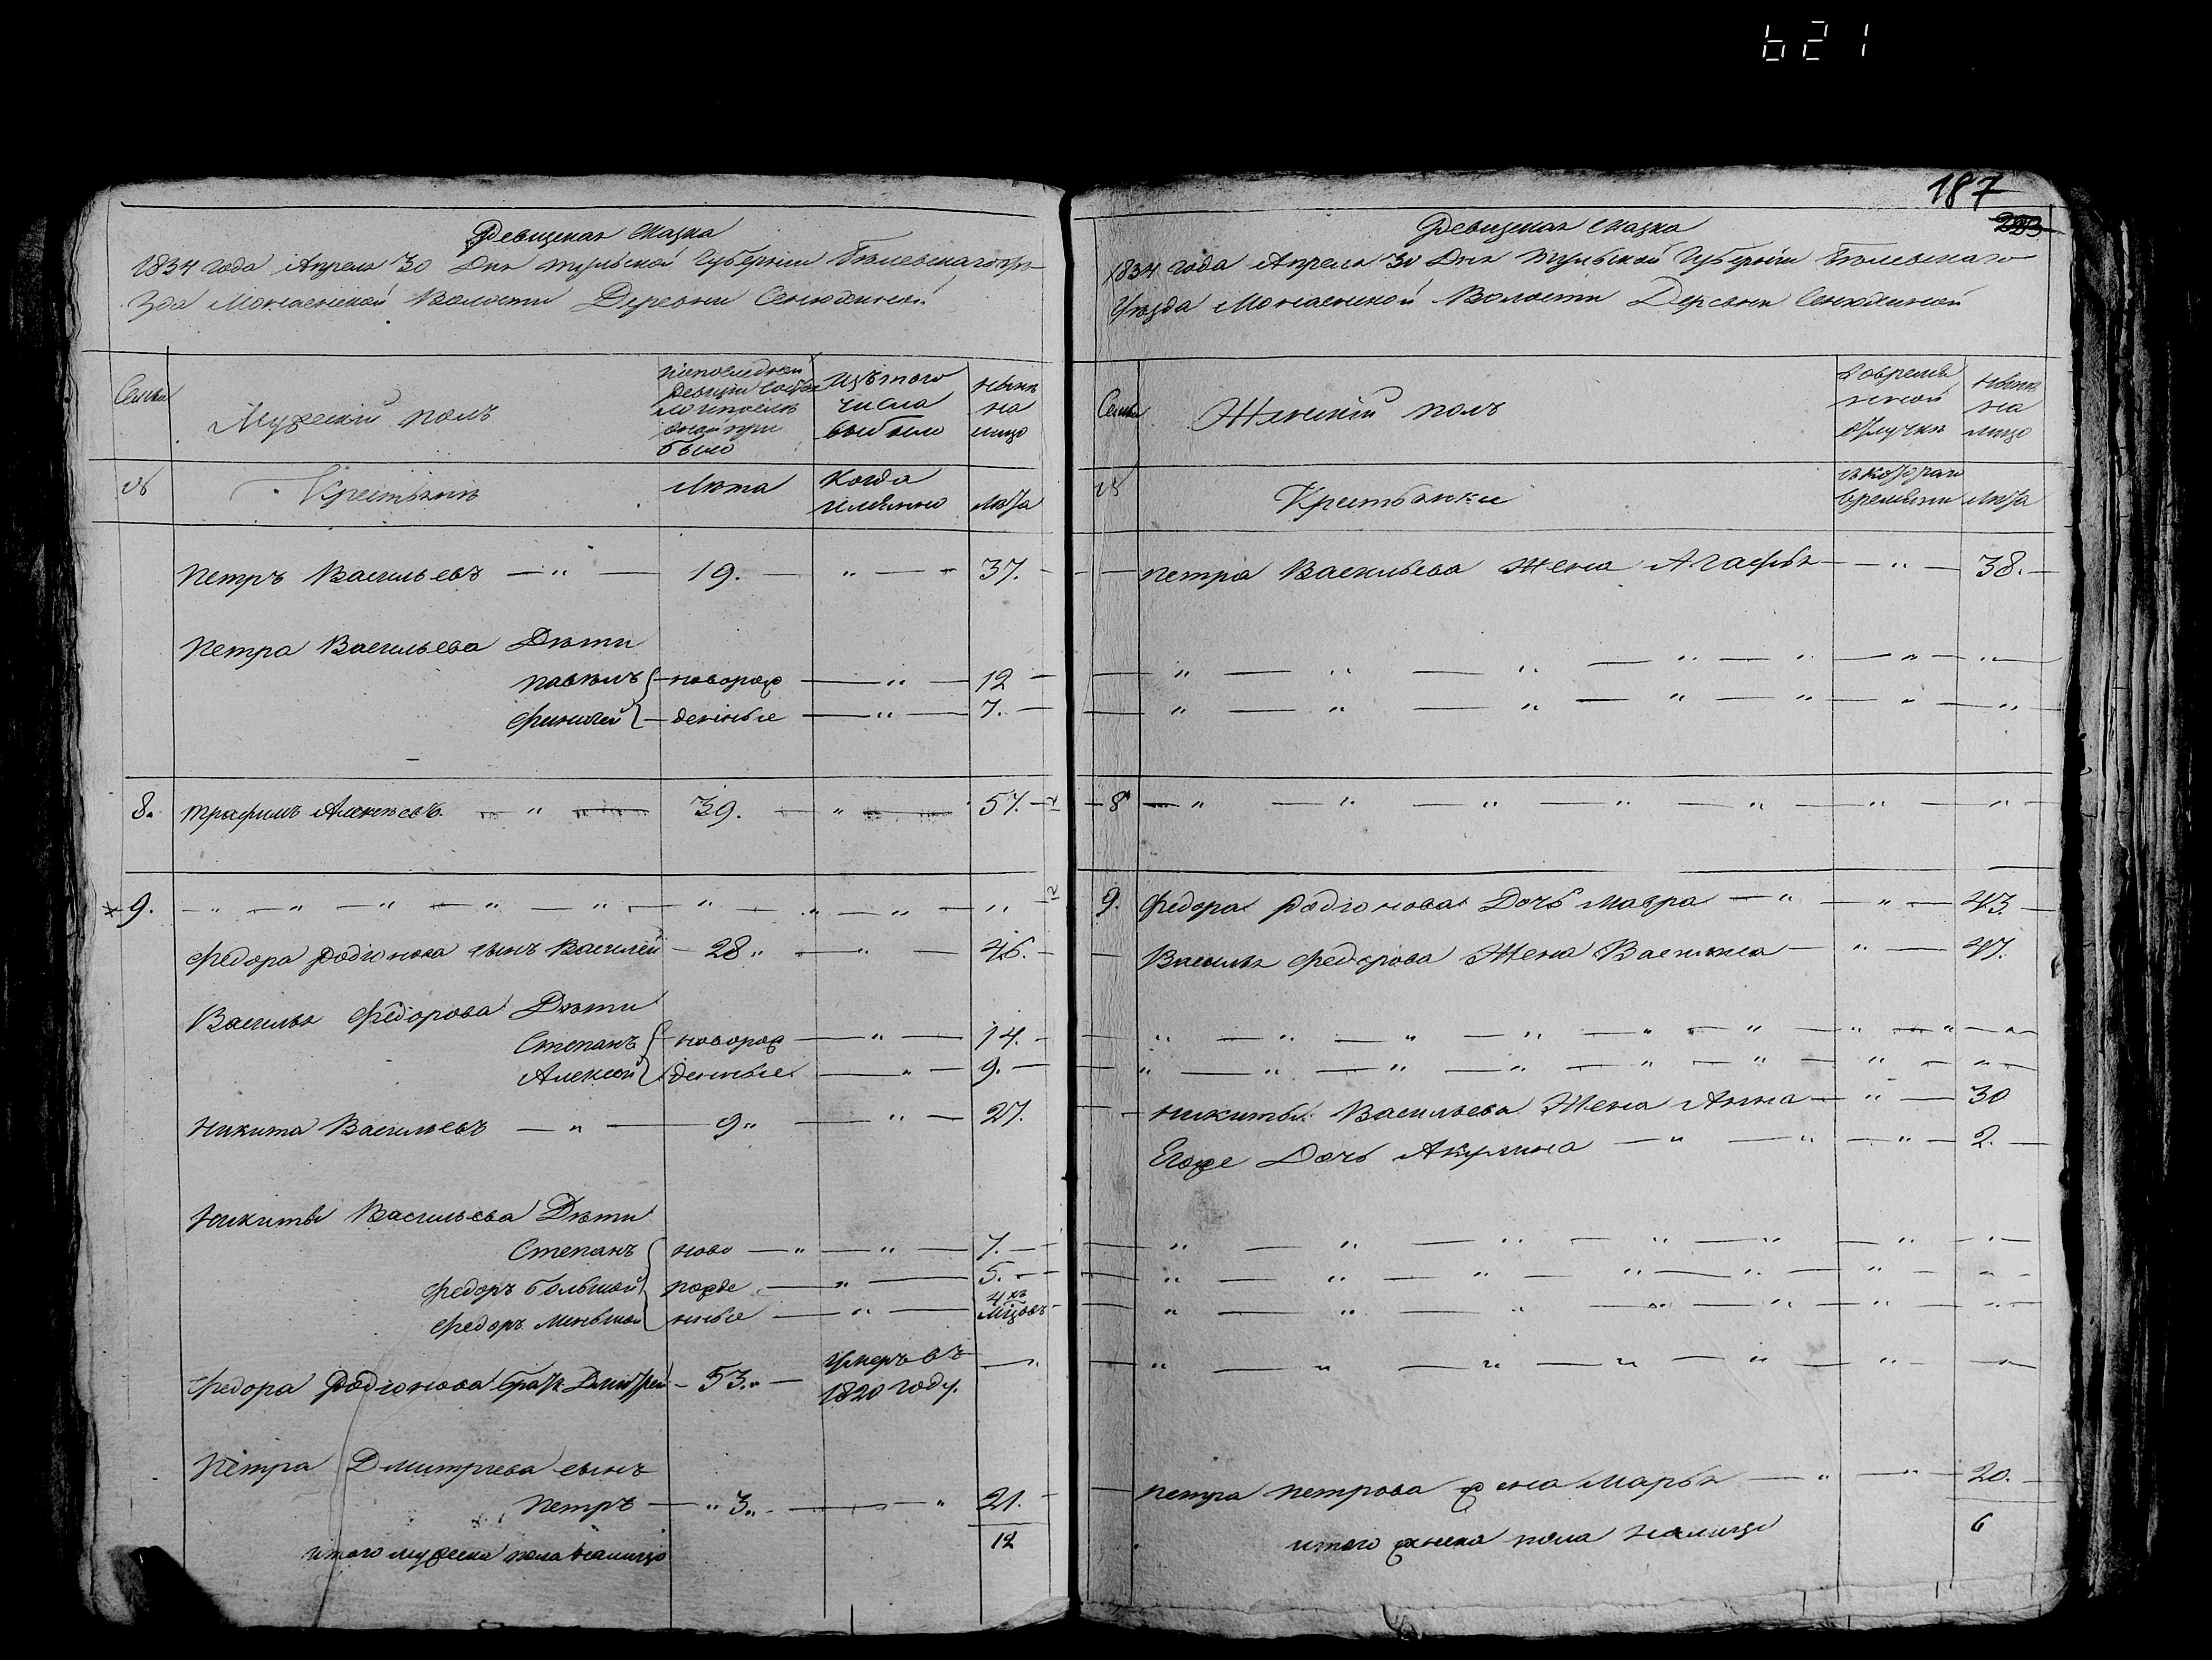 621
187
283
Ревизская сказка
1834 года Апреля 30 Дня Тульской Губернии Белевского Уѣ-
зда Монаенской Волости Деревни Сенюхиной
Семьи
Мужеский полъ
Изъ того
числа
выбыло
нынѣ
на
лицо
№
Крестьяне
Лѣта
Когда
именно
Лѣта
Петръ Васильевъ — " — 19. — " — " 37.
Петра Васильева Дѣти
новорож — " — 12
денные — " — 7.
8. Трафимъ Алексѣевъ — " — 39. — " — 57.
9. — " — " — " — " — " — " — " — " — "
Федора Родіонова сынъ Василей — 28 " — " — 46.
Василья Федорова Дѣти
Степанъ новорож — " — 14.
Алексей денные — " — 9.
Никита Васильевъ — " — 9 " — " — 27.
Никиты Васильева Дѣти
Степанъ ново — " — " — 7.
Федоръ большой рожде — " — 5.
Федоръ меньшой нные — " — 4хъ
Мцовъ
Федора Родіонова братъ Дмитрей — 53. " — умеръ въ
1820 году. — "
Петра Дмитриева сынъ
Петръ — " 3 " — — " 21.
итого мужеска пола налицо 12
Ревизская сказка
1834 года Апреля 30 Дня Тульской Губерніи Белевскаго
Уѣзда Монаенской Волости Деревни Сенюхиной
Семьи
Женскій полъ
во времен
ной
отлучкѣ
нынѣ
на
лицо
№
Крестьянки
съ котораго
времени
Лѣта
Петра Васильева Жена Агафья — " — 38.
— " — " — " — " — " — " — "
— " — " — " — " — " — " — "
8 — " — " — " — " — " — " — "
9. Федора Родіонова Дочь Мавра — " — " — 43
Василья Федорова Жена Василиса — " — 47.
" — " — " — " — " — " — " — " — "
" — " — " — " — " — " — " — "
Никиты Васильева Жена Анна — " — 30
Егоже Дочь Акулина — " — " — " — 2.
" — " — " — " — " — " — "
" — " — " — " — " — " — "
" — " — " — " — " — " — "
" — " — " — " — " — " — "
Петра Петрова жена Марья — " — " — 20.
итого женска пола налицо 6